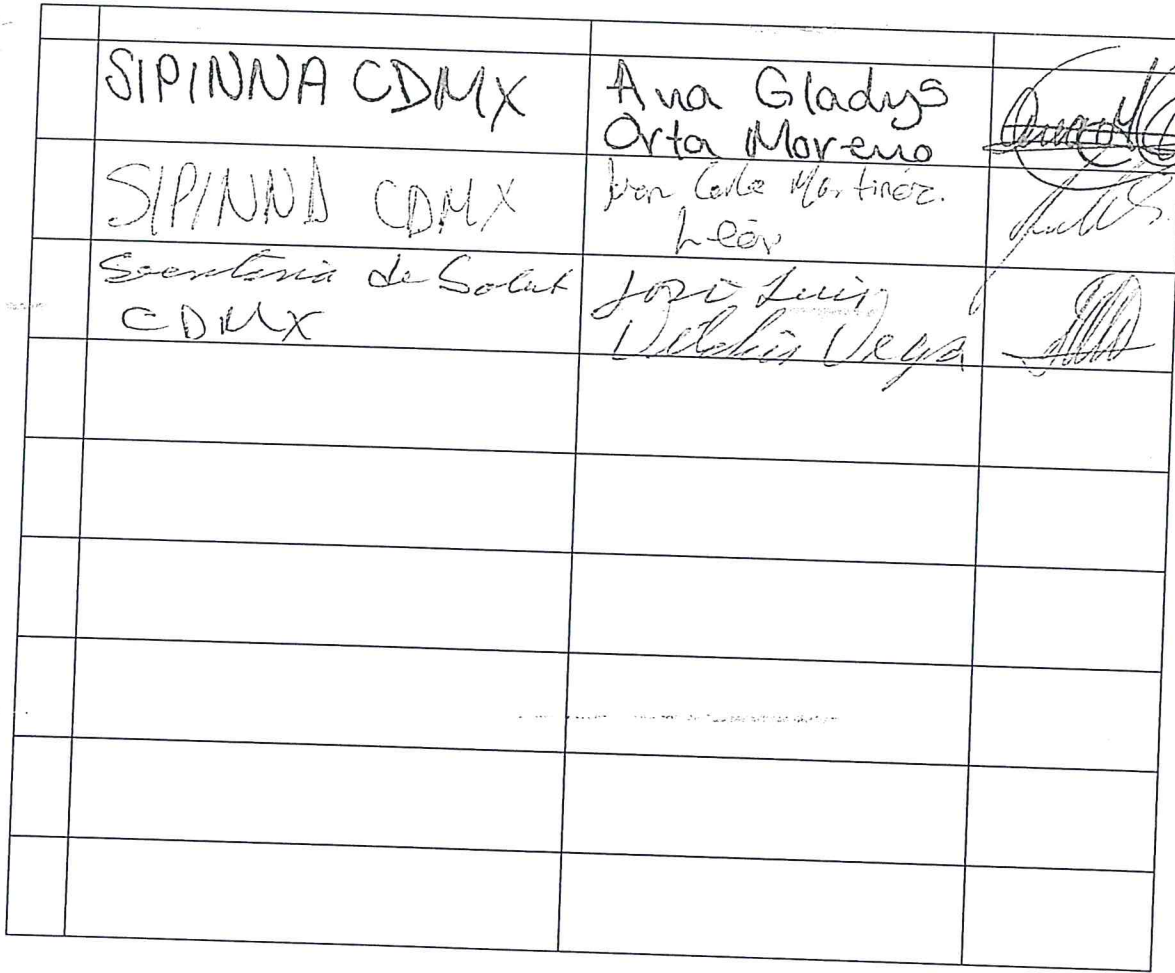 SIPINNA CDMX
Ana Gladys
Orta Moreno
SIPINNA CDMX
Juan Carlo Martínez.
León
Secretaria de Salud
CDMX
José Luis
Vega